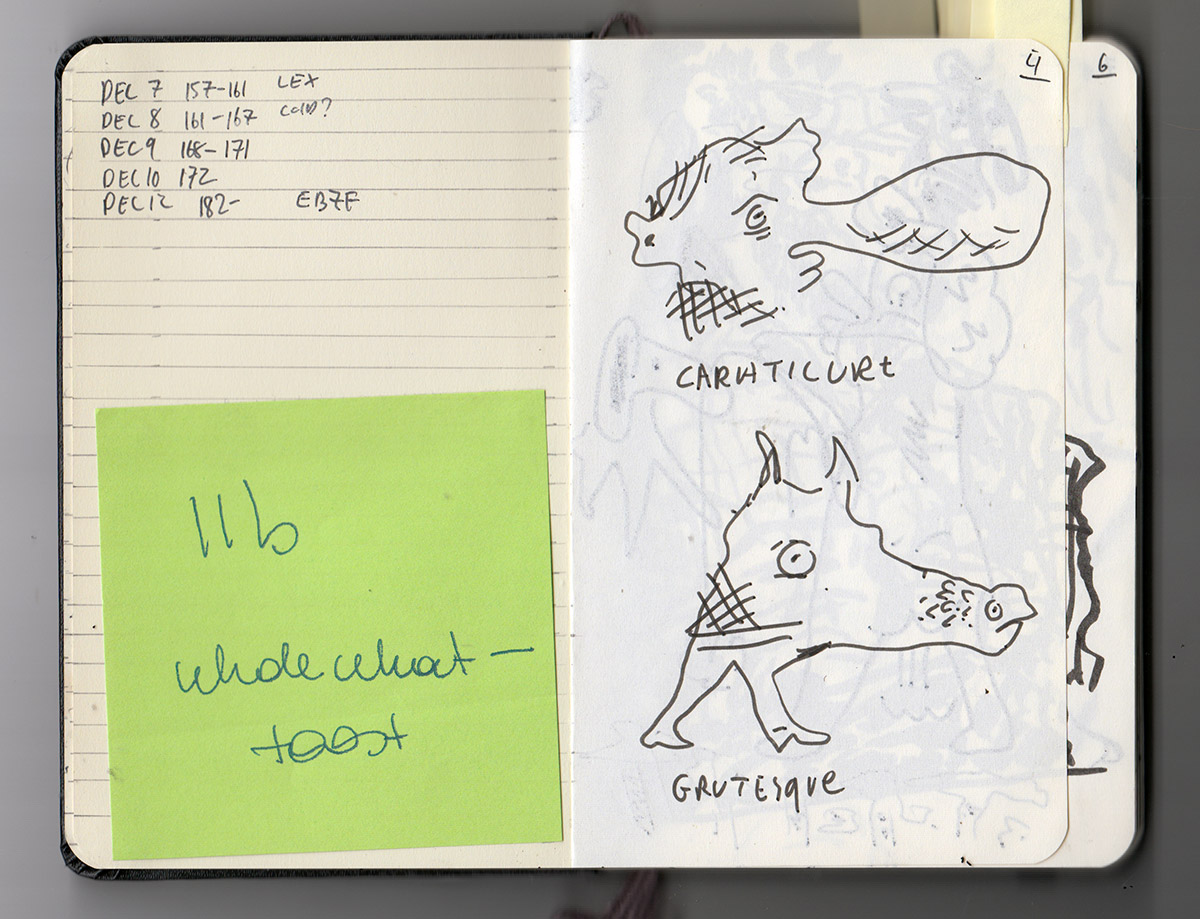 DEC 7 157-161 LEX
DEC 8 161-167
DEC 9 168-171
DEC 10 172
DEC 12 182- EBZE
11b
whole wheat -
toast
4
CARIATICURE
GROTESQUE
6